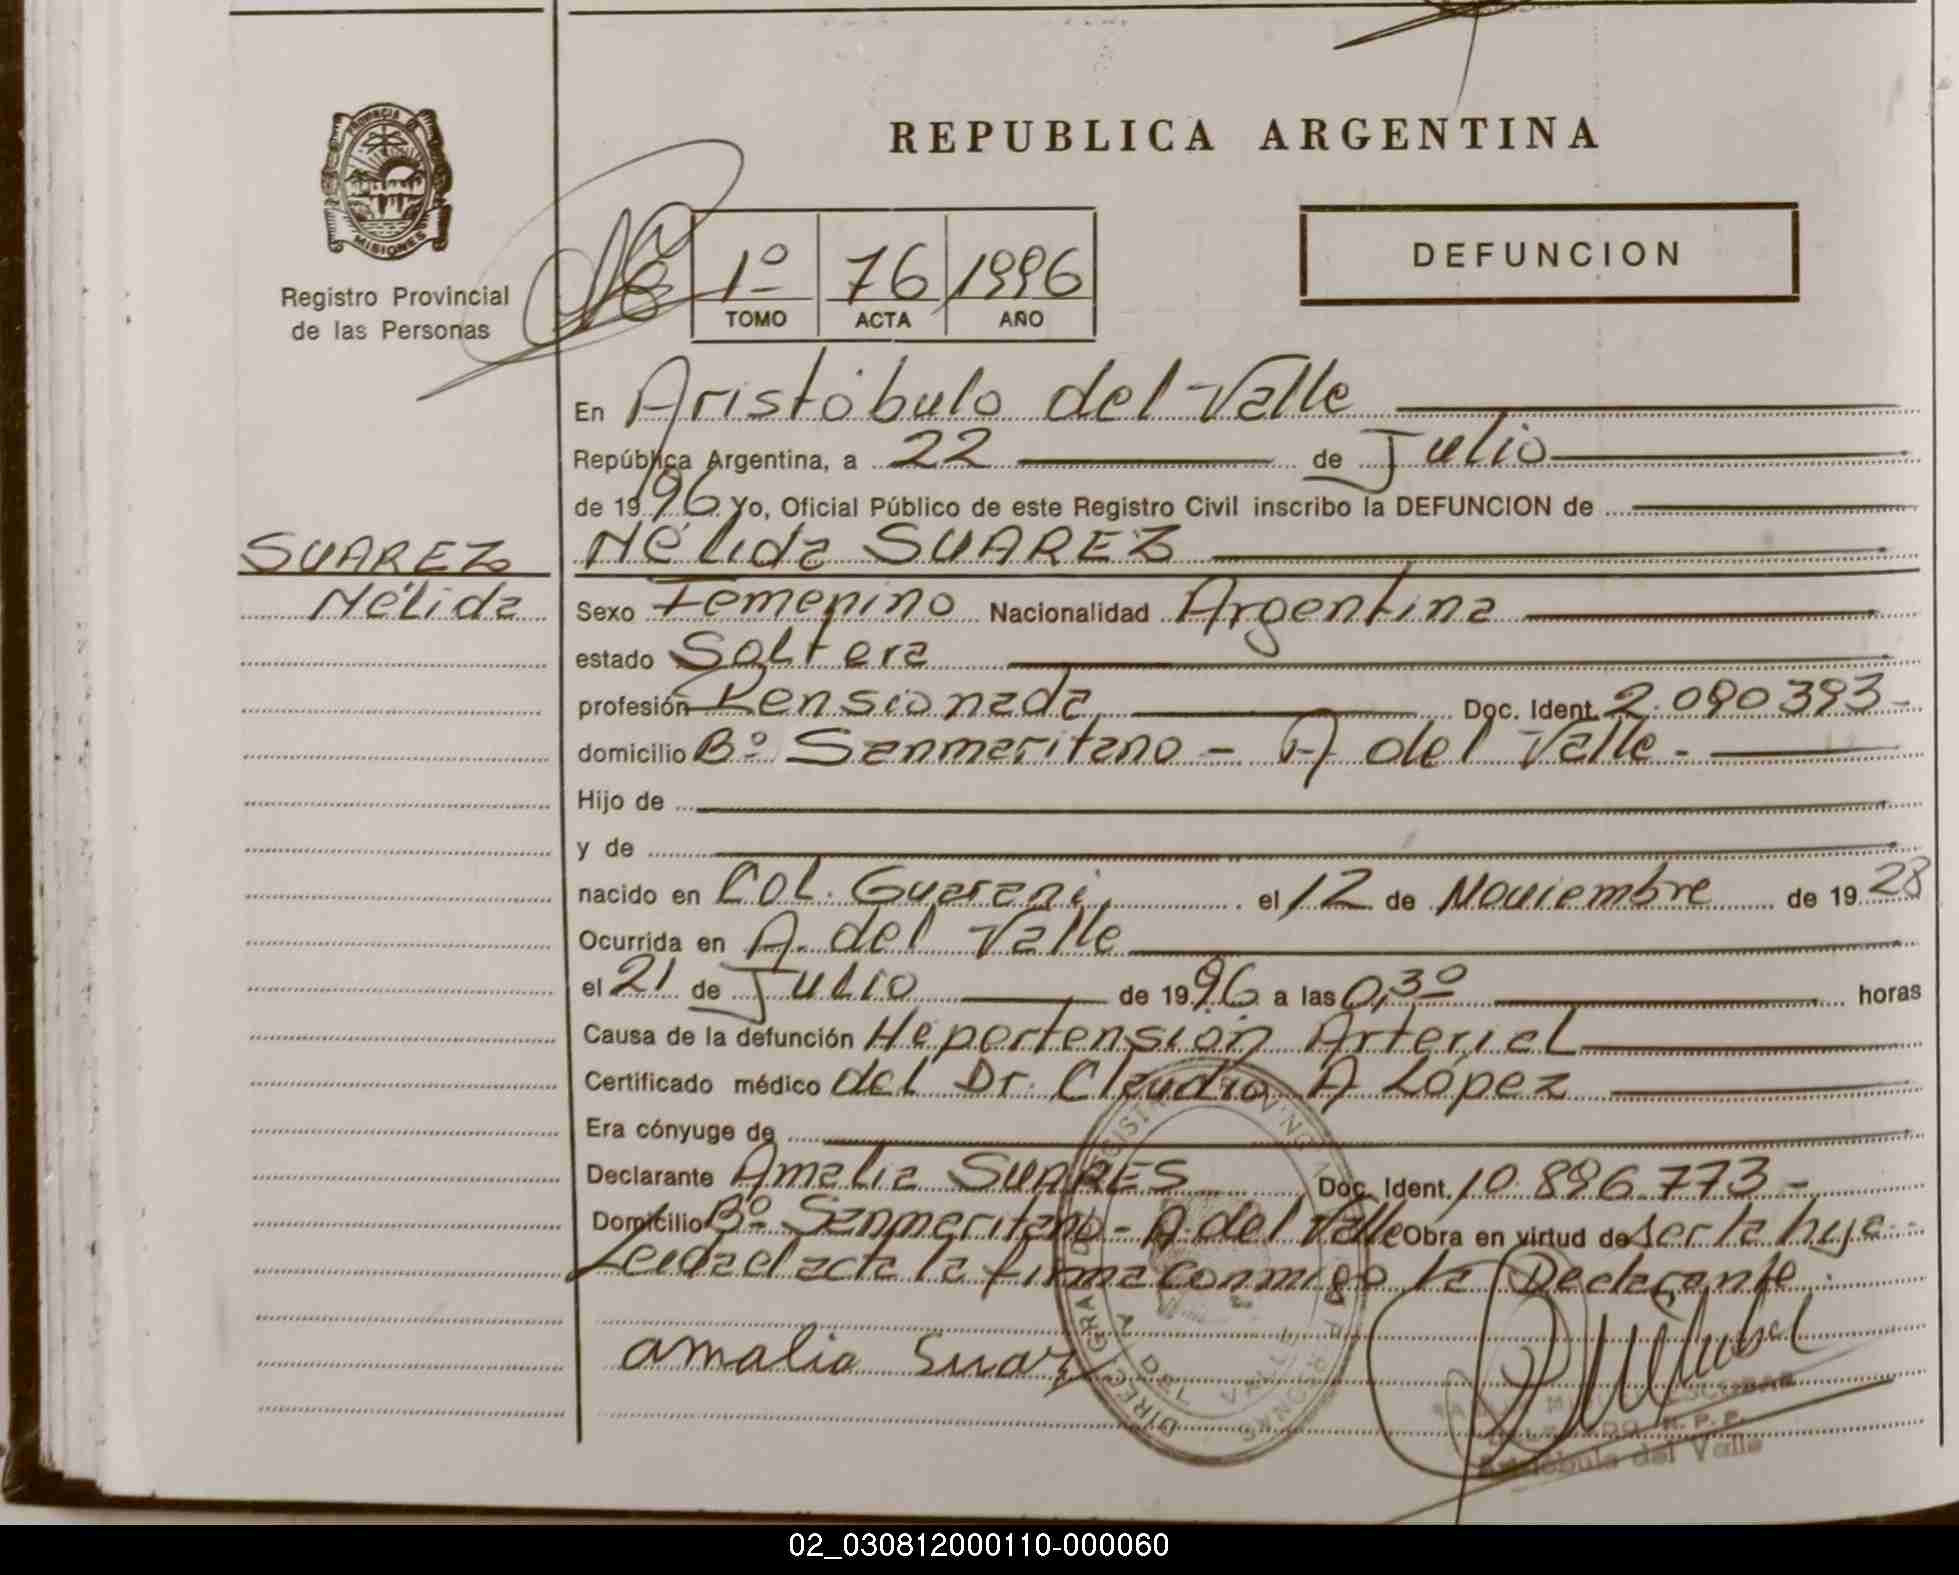 REPUBLICA ARGENTINA
PROVINCIA DE
MISIONES
Registro Provincial
de las Personas
1º 76 1996
TOMO ACTA AÑO
DEFUNCION
En Aristóbulo del Valle
República Argentina, a 22 de Julio
de 1996 Yo, Oficial Público de este Registro Civil inscribo la DEFUNCION de
SUAREZ
Nélida
Nélida SUAREZ
Sexo Femenino Nacionalidad Argentina
estado Soltera
profesión Pensionada Doc. Ident. 2.090393-
domicilio Bº Sanmaritano - A del Valle-
Hijo de
y de
nacido en Col. Guarani, el 12 de Noviembre de 1928
Ocurrida en A. del Valle
el 21 de Julio de 1996 a las 0,30 horas
Causa de la defunción Hepertensión Arterial
Certificado médico del Dr. Claudio A López
Era cónyuge de
Declarante Amalia SUARES Doc. Ident. 10.896.773-
Domicilio Bº Sanmaritano - A. del Valle Obra en virtud de ser la hija
Leida el acta la firma conmigo la Declarante.
amalia Suarz
A DEL VALLE
R. P. P.
Aristóbulo del Valle
02_030812000110-000060